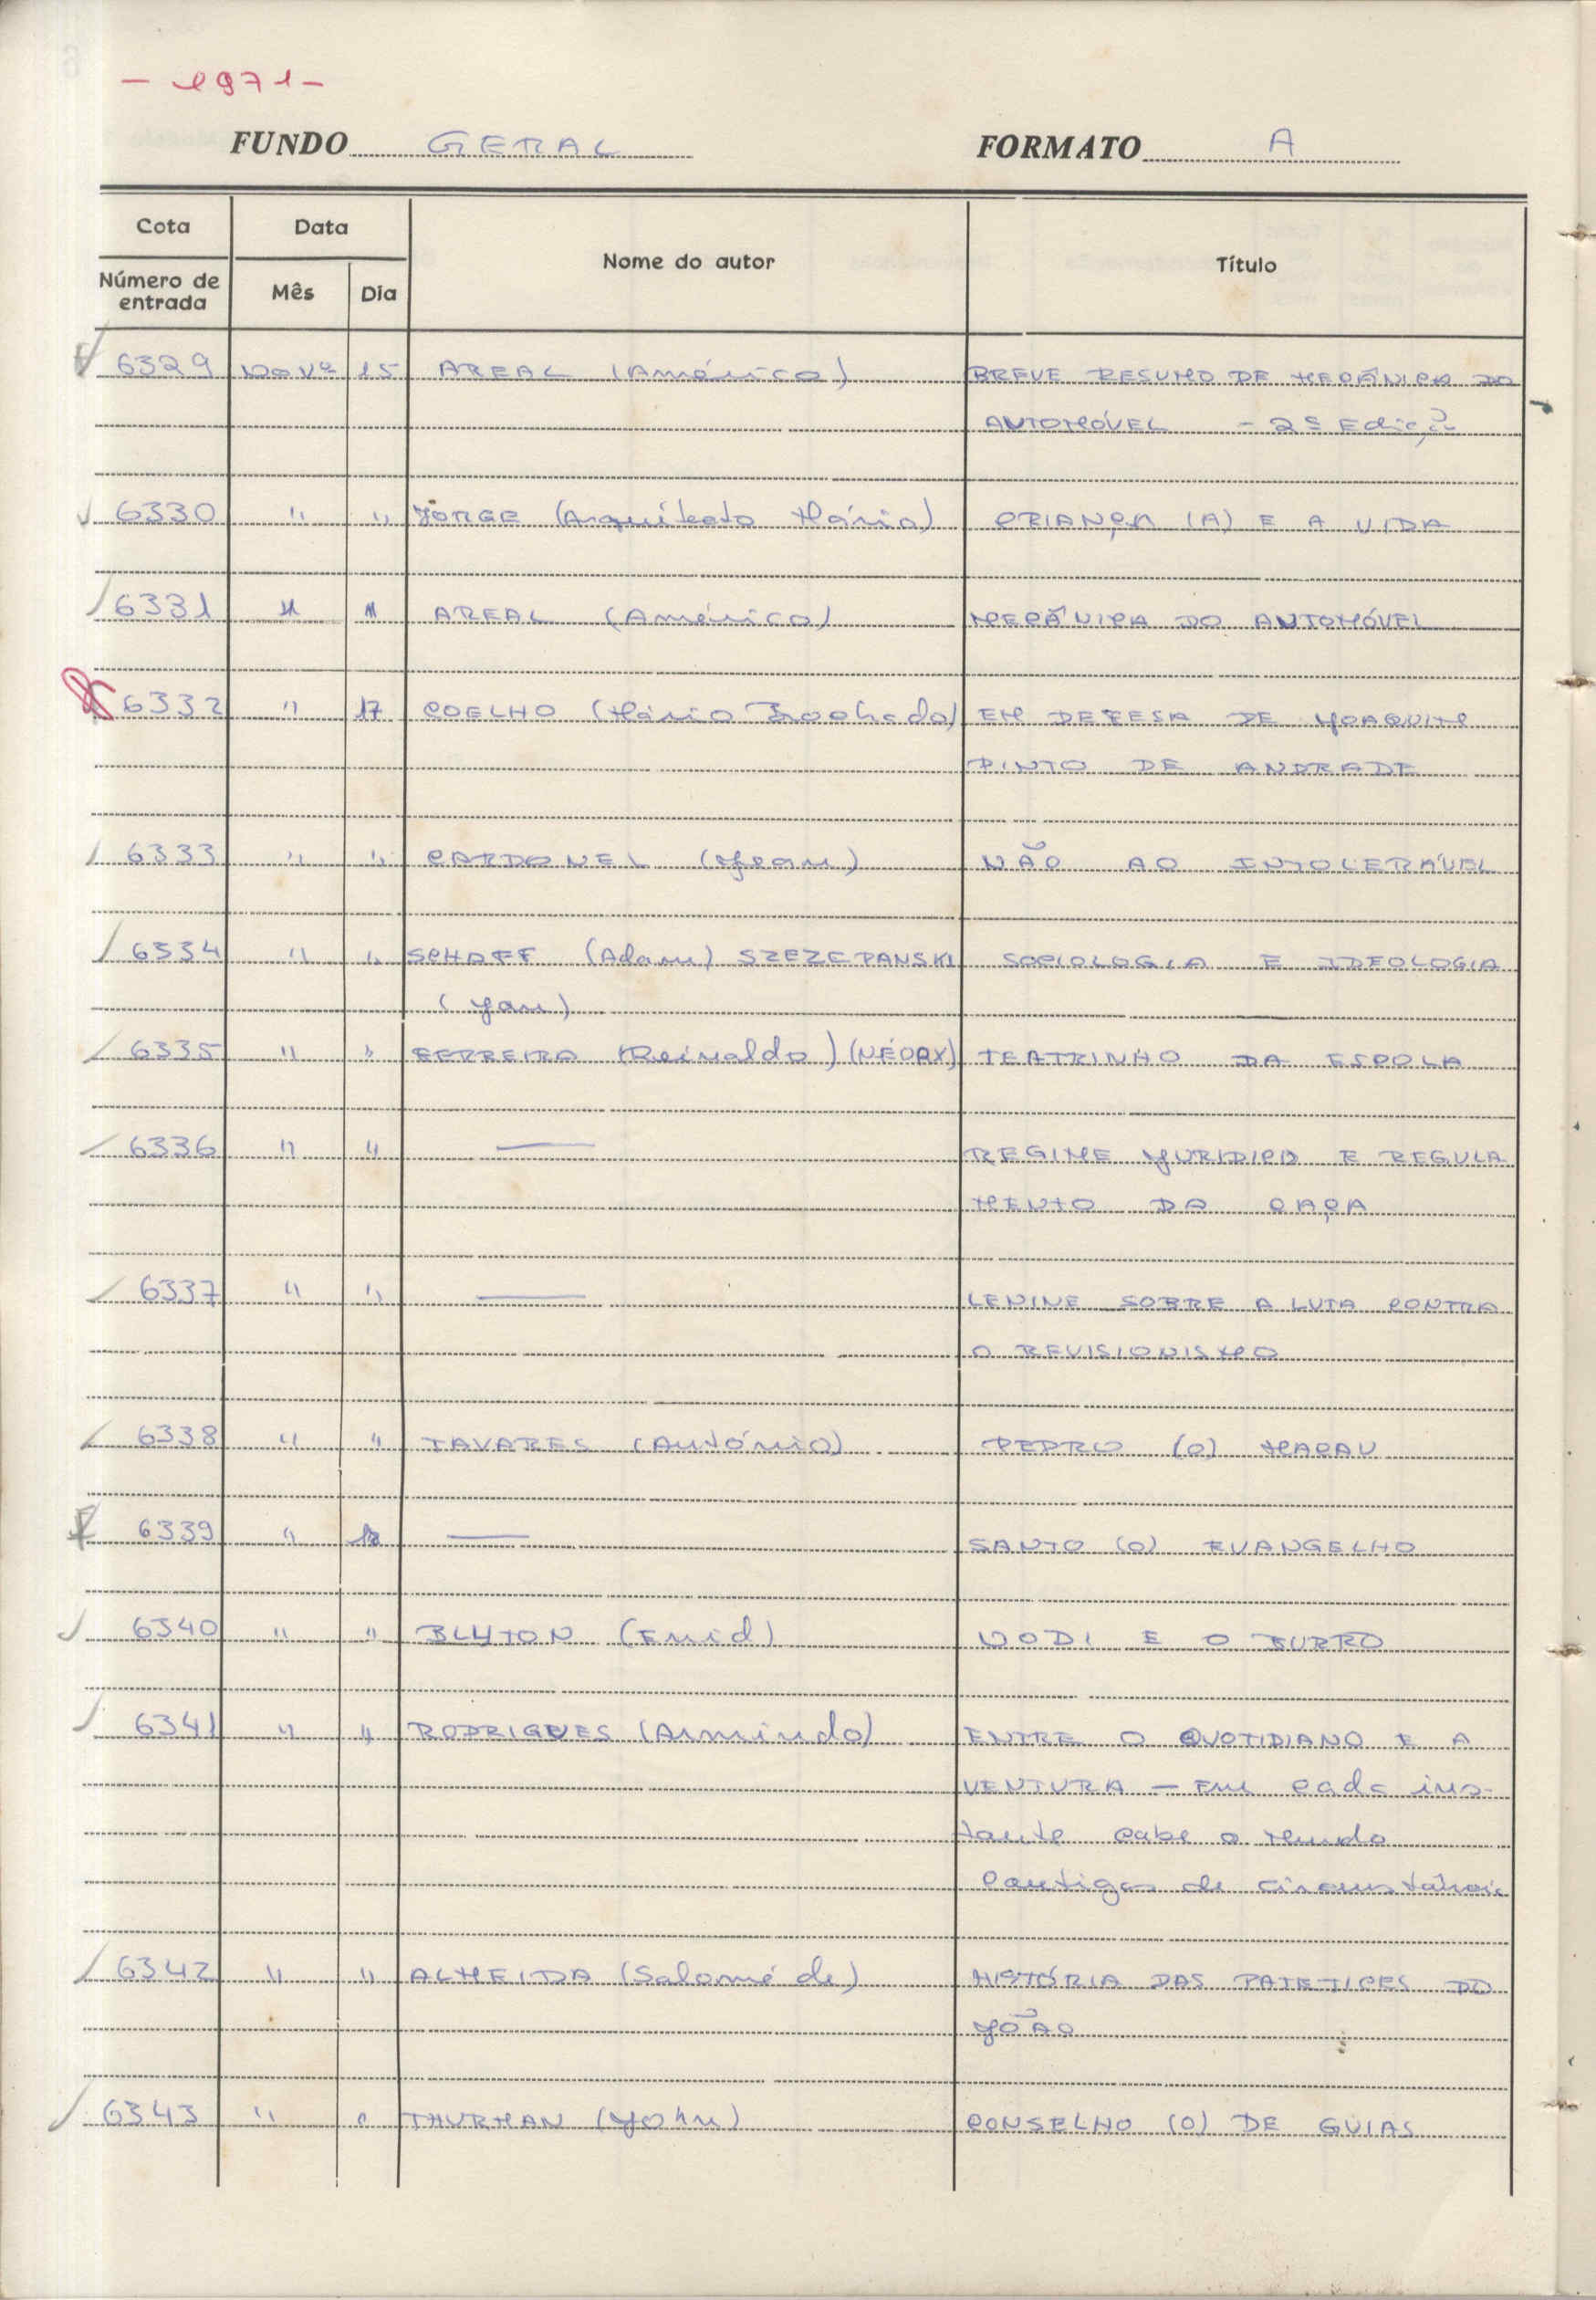 - 1971 -
FUNDO GERAL FORMATO A
Cota Data Nome do autor Título
Número de entrada Mês Dia
6329 Novº 15 AREAL (Américo) BREVE RESUMO DE MECÂNICA DO
AUTOMÓVEL - 2ª Edição
6330 " " JORGE (Arquitecto Mário) CRIANÇA (A) E A VIDA
6331 " " AREAL (Américo) MECÂNICA DO AUTOMÓVEL
6332 " 17 COELHO (Mário Brochado) EM DEFESA DE JOAQUIM
PINTO DE ANDRADE
6333 " " CARDONNEL (Jean) NÃO AO INTOLERÁVEL
6334 " " SCHAFF (Adam) SZEZEPANSKI SOCIOLOGIA E IDEOLOGIA
(Jan)
6335 " " FERREIRA (Reinaldo) (NÉORX) TEATRINHO DA ESCOLA
6336 " " — REGIME JURIDICO E REGULA
MENTO DA CAÇA
6337 " " — LENINE SOBRE A LUTA CONTRA
O REVISIONISMO
6338 " " TAVARES (António) PEDRO (O) MACAU
6339 " 18 — SANTO (O) EVANGELHO
6340 " " BLYTON (Enid) NODI E O BURRO
6341 " " RODRIGUES (Armindo) ENTRE O QUOTIDIANO E A
VENTURA - Em cada ins-
tante cabe o mundo
Cantigas de circunstância
6342 " " ALMEIDA (Salomé de) HISTÓRIA DAS PATETICES DO
JOÃO
6343 " " THURMAN (John) CONSELHO (O) DE GUIAS